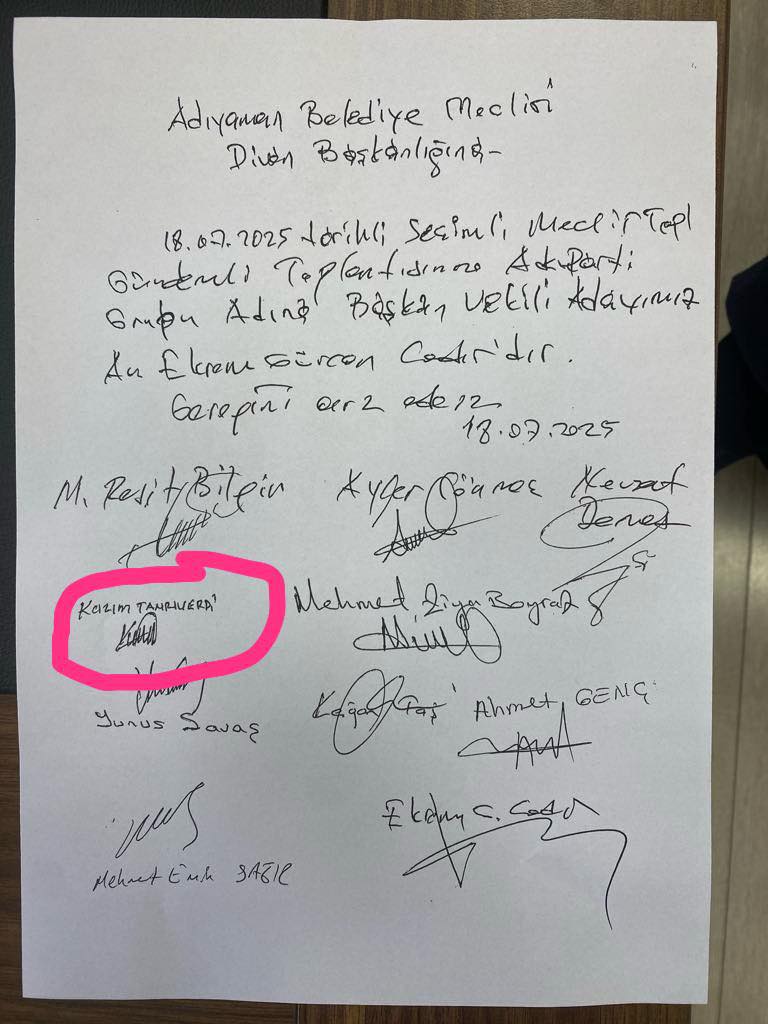 Adıyaman Belediye Meclisi
Divan Başkanlığına-
18.07.2025 tarihli Seçimli Meclis Topl
Gündemli Toplantısına Ak Parti
Grubu Adına Başkan Vekili Adayımız
Av Ekrem Gürcan Çadır'dır.
Gereğini arz ederiz
18.07.2025
M. Reşit Bilgin Ayfer Nevzat
KAZIM TANRIVERDİ
Mehmet Ziya Boyraz
Yunus Savaş
Taş Ahmet GENÇ
Ekrem G. Çadır
Mehmet Emin